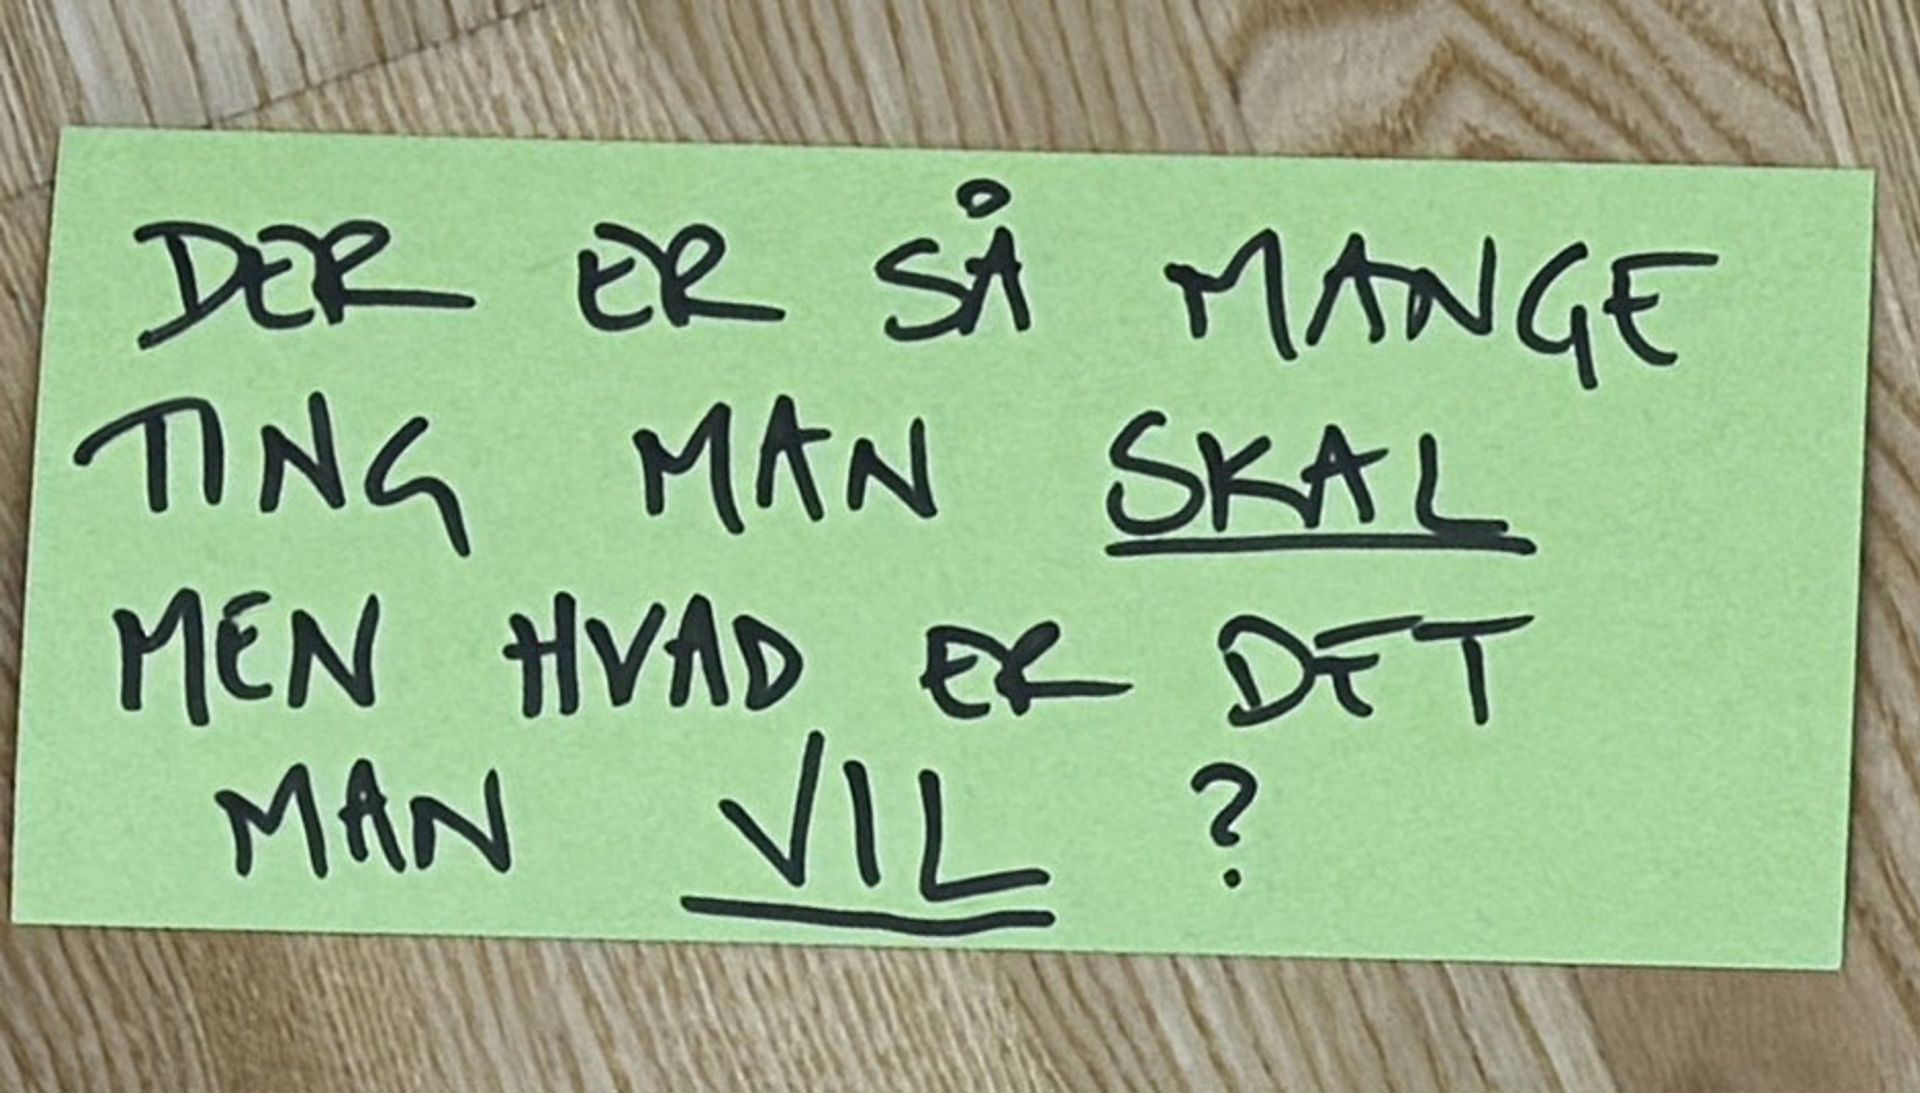 DER ER SÅ MANGE
TING MAN SKAL
MEN HVAD ER DET
MAN VIL ?